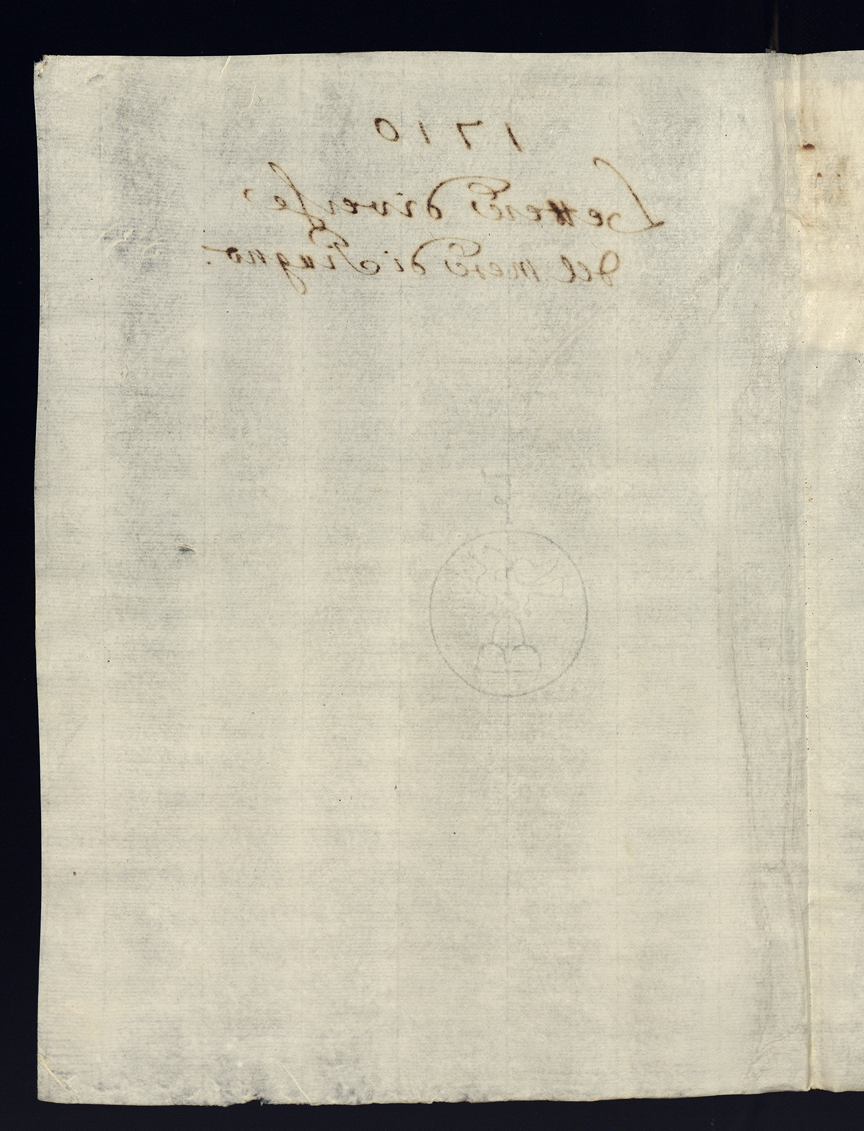 1710
Lettere diverse
del mese di Giugno.